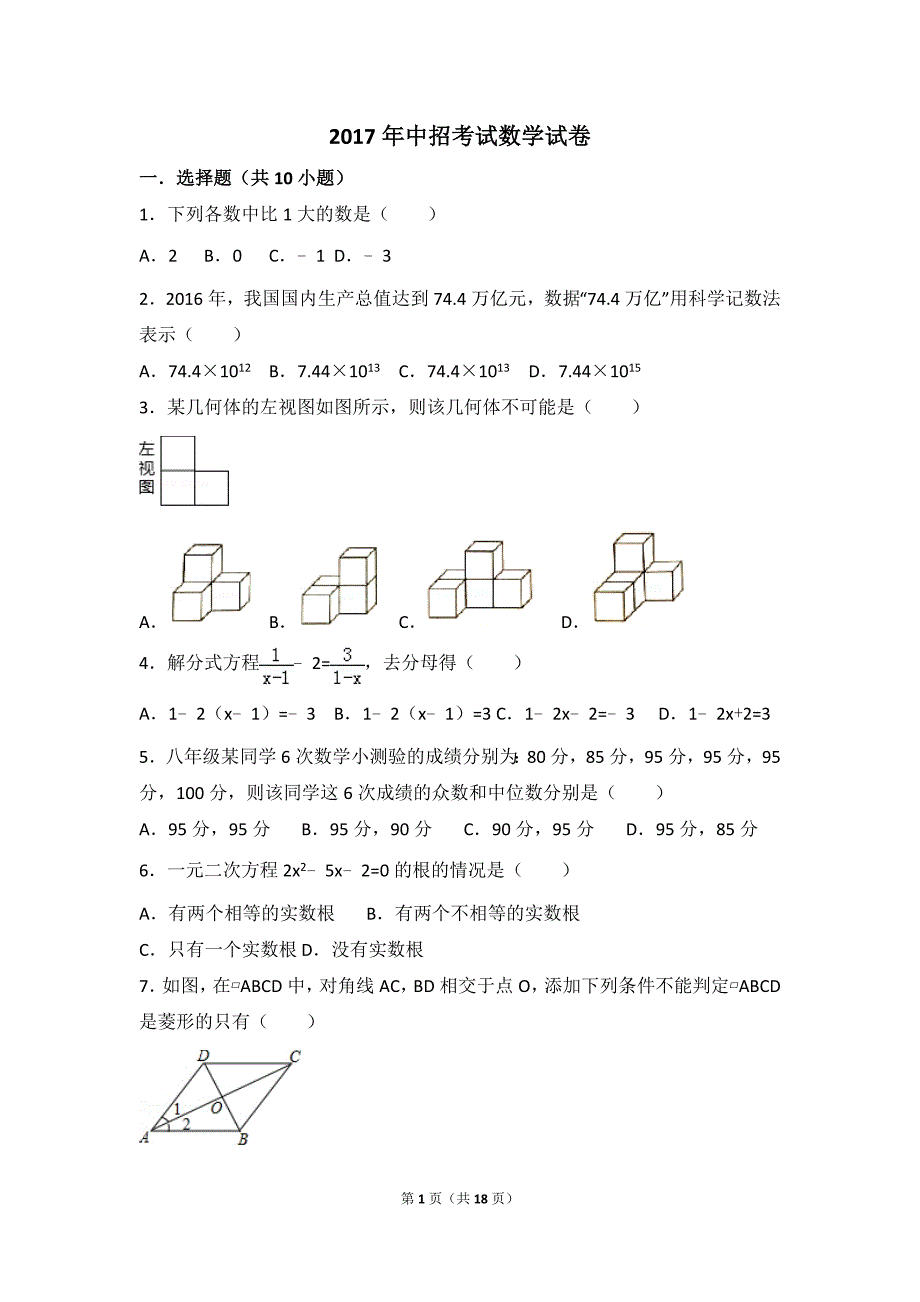 2017 年中招考试数学试卷
一．选择题（共 10 小题）
1．下列各数中比 1 大的数是（　　）
A．2　B．0　C．﹣1 D．﹣3
2．2016 年，我国国内生产总值达到 74.4 万亿元，数据“74.4 万亿”用科学记数法
表示（　　）
A．74.4×10¹²　B．7.44×10¹³　C．74.4×10¹³　D．7.44×10¹⁵
3．某几何体的左视图如图所示，则该几何体不可能是（　　）
左视图
A．　B．　C．　D．
4．解分式方程 1/(x-1) ﹣2= 3/(1-x)，去分母得（　　）
A．1﹣2（x﹣1）=﹣3　B．1﹣2（x﹣1）=3 C．1﹣2x﹣2=﹣3　D．1﹣2x+2=3
5．八年级某同学 6 次数学小测验的成绩分别为：80 分，85 分，95 分，95 分，95
分，100 分，则该同学这 6 次成绩的众数和中位数分别是（　　）
A．95 分，95 分　B．95 分，90 分　C．90 分，95 分　D．95 分，85 分
6．一元二次方程 2x²﹣5x﹣2=0 的根的情况是（　　）
A．有两个相等的实数根　B．有两个不相等的实数根
C．只有一个实数根 D．没有实数根
7．如图，在▱ABCD 中，对角线 AC，BD 相交于点 O，添加下列条件不能判定▱ABCD
是菱形的只有（　　）
D C
1 O
A 2 B
第 1 页（共 18 页）